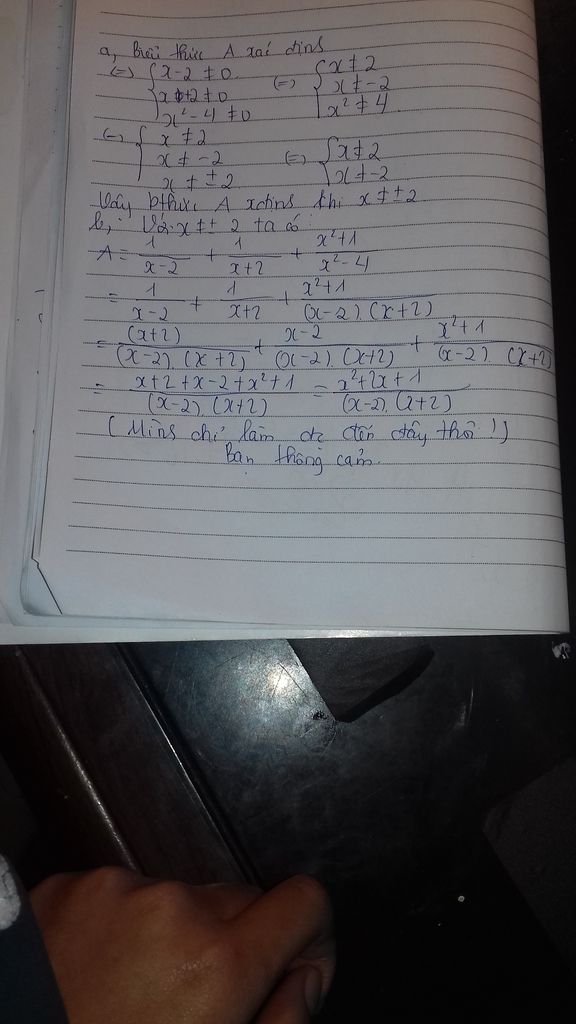 a, Biểu thức A xác định
(=) { x-2 ≠ 0 (=) { x ≠ 2
x+2 ≠ 0 x ≠ -2
x²-4 ≠ 0 x² ≠ 4
(=) { x ≠ 2 (=) { x ≠ 2
x ≠ -2 x ≠ -2
x ≠ ±2
Vậy bthức A xđịnh khi x ≠ ±2
b, Với x ≠ ± 2 ta có:
A = 1/(x-2) + 1/(x+2) + (x²+1)/(x²-4)
= 1/(x-2) + 1/(x+2) + (x²+1)/((x-2).(x+2))
= (x+2)/((x-2).(x+2)) + (x-2)/((x-2).(x+2)) + (x²+1)/((x-2).(x+2))
= (x+2+x-2+x²+1)/((x-2).(x+2)) = (x²+2x+1)/((x-2).(x+2))
(Mình chỉ làm đc đến đây thôi!)
Bạn thông cảm.